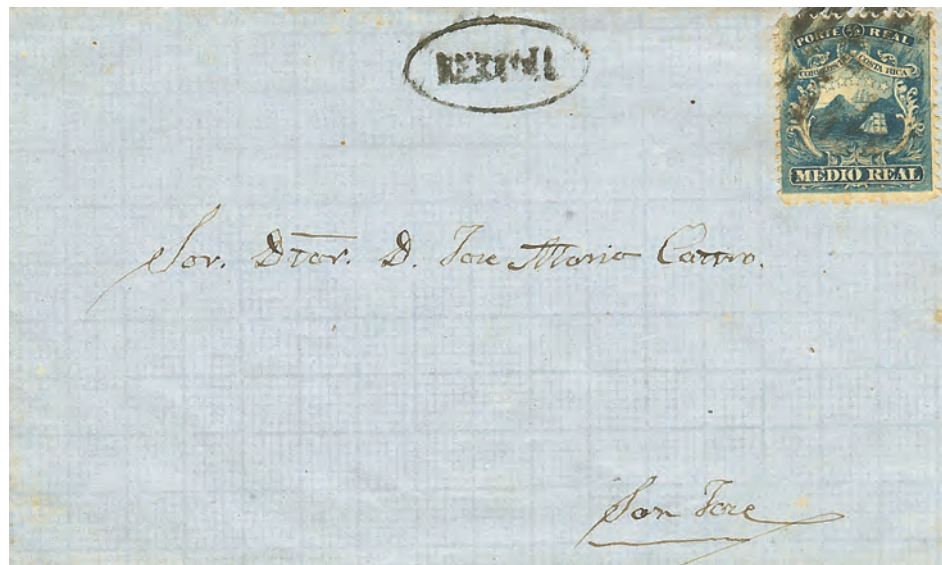 PORTE ½ REAL
CORREOS DE COSTA RICA
MEDIO REAL
Sor. Dtor. D. Jose Maria Castro.
San Jose